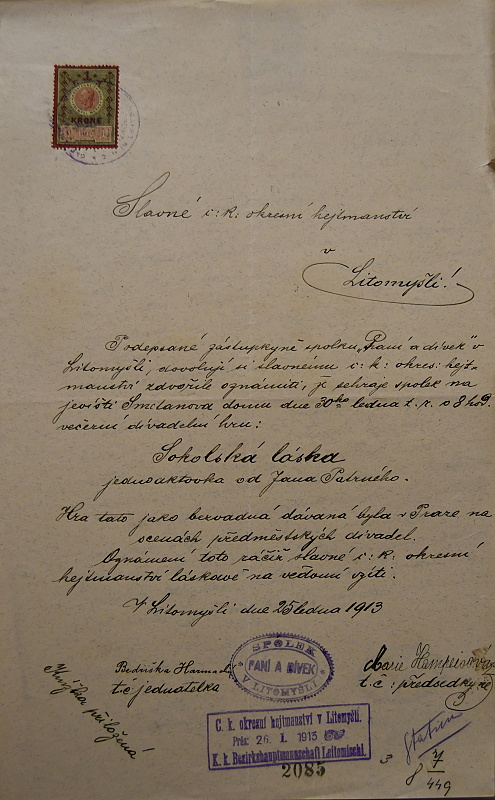 1
KRONE
Slavné c: k: okresní hejtmanství
v
Litomyšli!
Podepsané zástupkyně spolku „Paní a dívek“ v
Litomyšli, dovolují si slavnému c: k: okres: hejt-
manství zdvořile oznámiti, že sehraje spolek na
jevišti Smetanova domu dne 30ho ledna t. r. o 8 hod.
večerní divadelní hru:
Sokolská láska
jednoaktovka od Jana Patrného.
Hra tato jako bezvadná dávaná byla v Praze na
scenách předměstských divadel.
Oznámení toto račiž slavné c: k. okresní
hejtmanství láskavě na vědomí vzíti.
V Litomyšli dne 25 ledna 1913
Bedřiška
t. č. jednatelka
SPOLEK
PANÍ A DÍVEK
V LITOMYŠLI
Marie
t. č: předsedkyně
Knížka přiložená
C. k. okresní hejtmanství v Litomyšli.
Präs: 26. 1. 1913
K. k. Bezirkshauptmannschaft Leitomischl.
2085
3
8 7
449